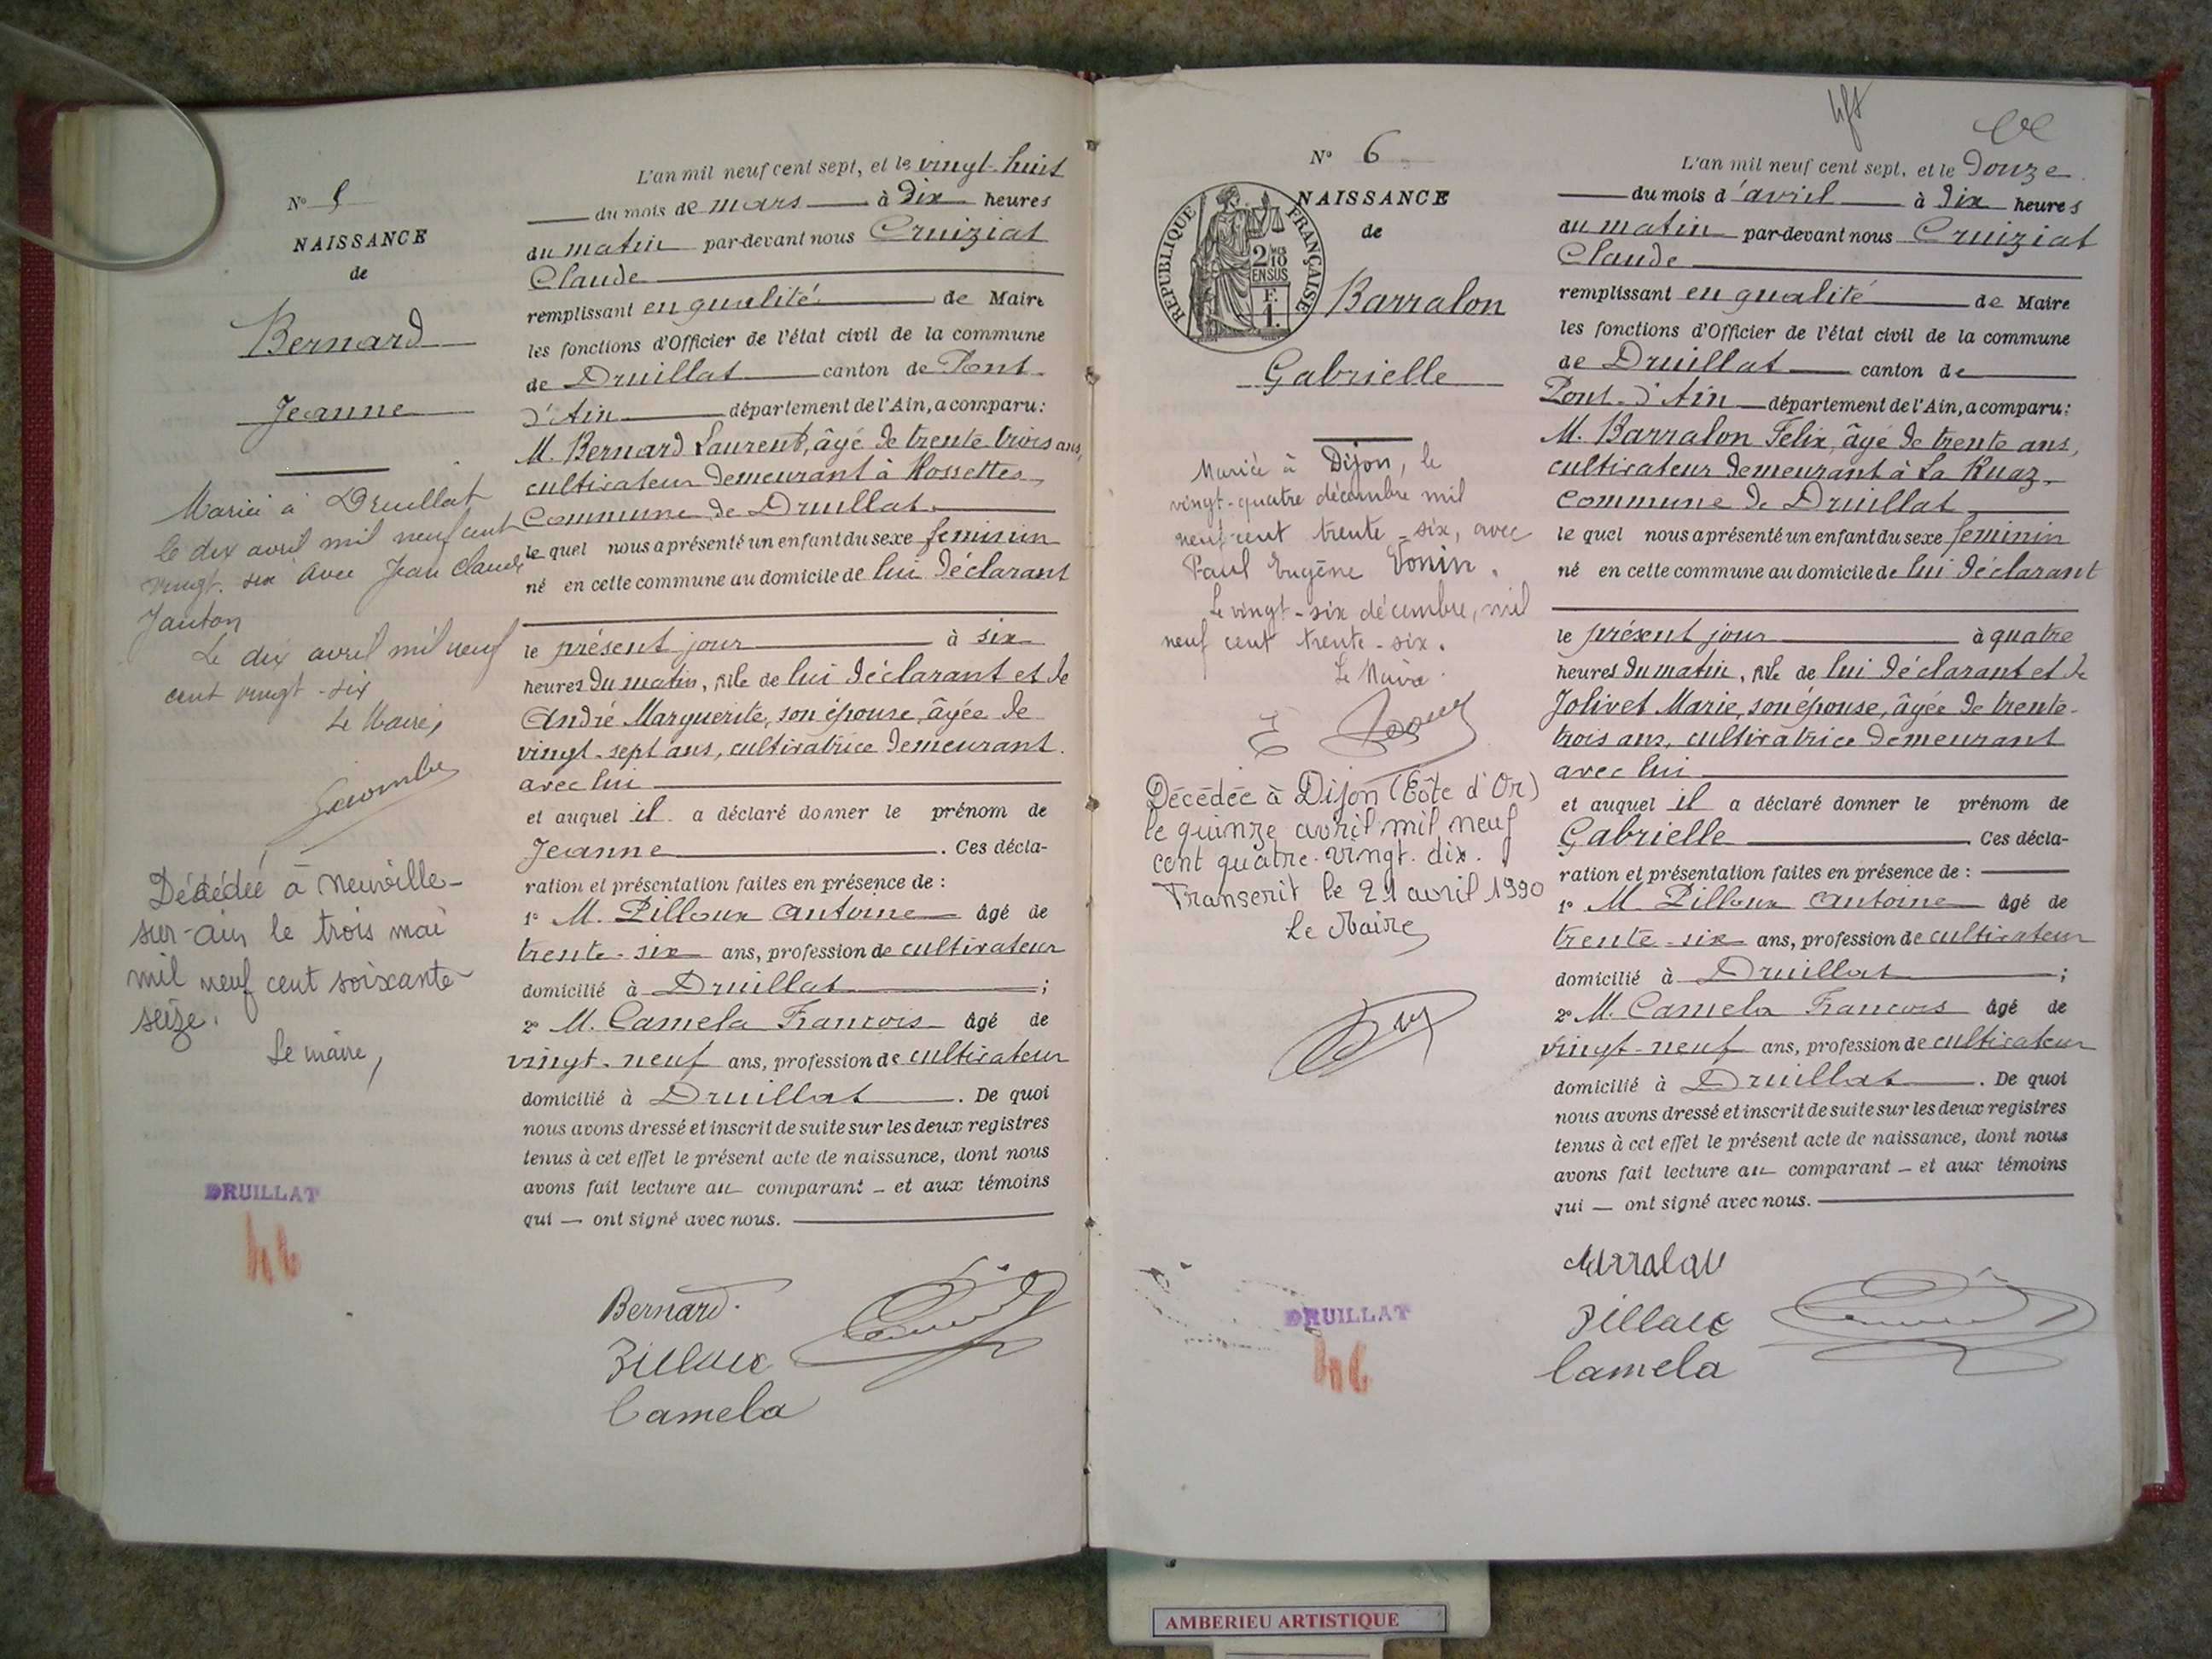 N° 5
NAISSANCE
de
Bernard
Jeanne
Mariée à Druillat
le dix avril mil neuf cent
vingt-six avec Jean Claude
Janton
Le dix avril mil neuf
cent vingt-six
Le Maire,
Décédée à Neuville-
sur-Ain le trois mai
mil neuf cent soixante-
seize.
Le maire,
DRUILLAT
L'an mil neuf cent sept, et le vingt-huit
du mois de mars à dix heures
du matin par-devant nous Cruiziat
Claude
remplissant en qualité de Maire
les fonctions d'Officier de l'état civil de la commune
de Druillat canton de Pont-
d'Ain département de l'Ain, a comparu:
M. Bernard Laurent, âgé de trente-trois ans,
cultivateur demeurant à Rossettes,
Commune de Druillat.
le quel nous a présenté un enfant du sexe féminin
né en cette commune au domicile de lui déclarant
le présent jour à six
heures du matin, fille de lui déclarant et de
André Marguerite, son épouse, âgée de
vingt-sept ans, cultivatrice demeurant
avec lui
et auquel il a déclaré donner le prénom de
Jeanne. Ces décla-
ration et présentation faites en présence de :
1° M. Pilloux Antoine âgé de
trente-six ans, profession de cultivateur
domicilié à Druillat ;
2° M. Camela François âgé de
vingt-neuf ans, profession de cultivateur
domicilié à Druillat. De quoi
nous avons dressé et inscrit de suite sur les deux registres
tenus à cet effet le présent acte de naissance, dont nous
avons fait lecture au comparant - et aux témoins
qui — ont signé avec nous.
Bernard
Pilloux
Camela
N° 6
NAISSANCE
de
RÉPUBLIQUE FRANÇAISE
2/10
EN SUS
Barralon
Gabrielle
Mariée à Dijon, le
vingt-quatre décembre mil
neuf cent trente-six, avec
Paul Eugène Vonin.
Le vingt-six décembre, mil
neuf cent trente-six.
Le Maire
Décédée à Dijon (Côte d'Or)
le quinze avril mil neuf
cent quatre-vingt-dix.
Transcrit le 21 avril 1990
Le Maire
DRUILLAT
L'an mil neuf cent sept, et le douze
du mois d'avril à dix heures
du matin par-devant nous Cruiziat
Claude
remplissant en qualité de Maire
les fonctions d'Officier de l'état civil de la commune
de Druillat canton de
Pont-d'Ain département de l'Ain, a comparu:
M. Barralon Félix, âgé de trente ans,
cultivateur demeurant à La Ruaz,
Commune de Druillat
le quel nous a présenté un enfant du sexe féminin
né en cette commune au domicile de lui déclarant
le présent jour à quatre
heures du matin, fille de lui déclarant et de
Jolivet Marie, son épouse, âgée de trente-
trois ans, cultivatrice demeurant
avec lui
et auquel il a déclaré donner le prénom de
Gabrielle. Ces décla-
ration et présentation faites en présence de :
1° M. Pilloux Antoine âgé de
trente-six ans, profession de cultivateur
domicilié à Druillat ;
2° M. Camela François âgé de
vingt-neuf ans, profession de cultivateur
domicilié à Druillat. De quoi
nous avons dressé et inscrit de suite sur les deux registres
tenus à cet effet le présent acte de naissance, dont nous
avons fait lecture au comparant - et aux témoins
qui — ont signé avec nous.
Barralon
Pilloux
Camela
AMBERIEU ARTISTIQUE